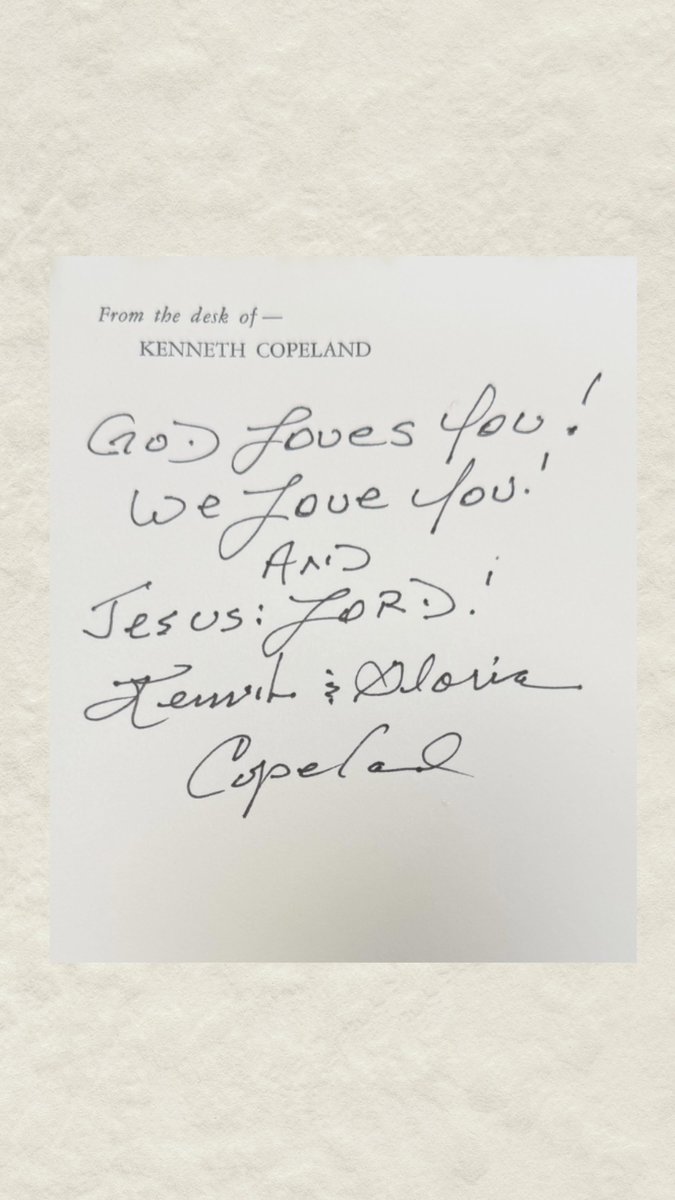 From the desk of —
KENNETH COPELAND
GOD Loves You!
We Love You!
AND
Jesus: LORD!
Kenneth & Gloria
Copeland